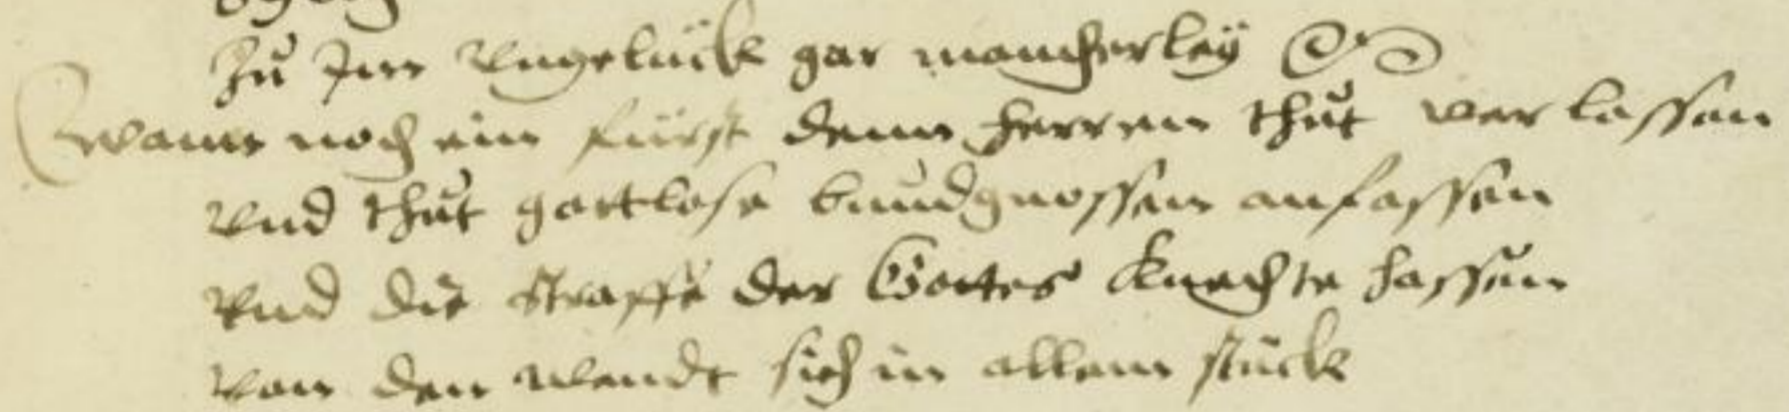 Zu Jrer Vngelück gar mancherley
Wann noch ein fürst denn herren thut ver lassen
Vnd thut gottlose bundgnossen anfassen
Vnd die straffe der Gottes Knechte hassen
Von den wendt sich in allem stück